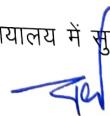 यालय में सु